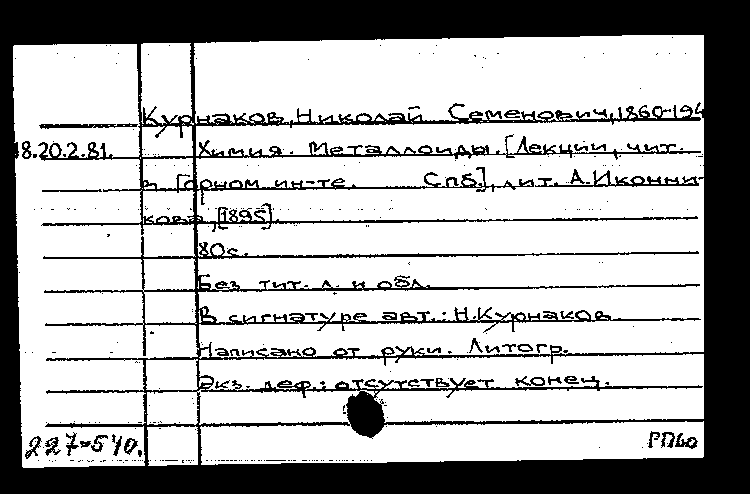 Курнаков, Николай Семенович, 1860-194
18.20.2.81. Химия. Металлоиды. [Лекции, чит.
в Горном ин-те. Спб.], лит. А. Иконни-
кова, [1895].
80с.
Без тит. л. и обл.
В сигнатуре авт.: Н. Курнаков.
Написано от руки. Литогр.
Экз. деф.: отсутствует конец.
227-540. РП60